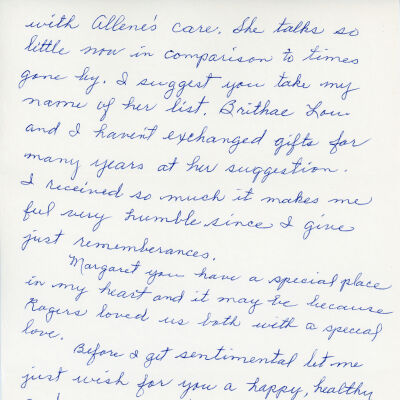 with Allene's care. She talks so
little now in comparison to times
gone by. I suggest you take my
name of her list. Brithae Lou
and I haven't exchanged gifts for
many years at her suggestion.
I received so much it makes me
ful very humble since I give
just rememberances.
Margaret you have a special place
in my heart and it may be because
Rogers loved us both with a special
love.
Before I get sentimental let me
just wish for you a happy, healthy